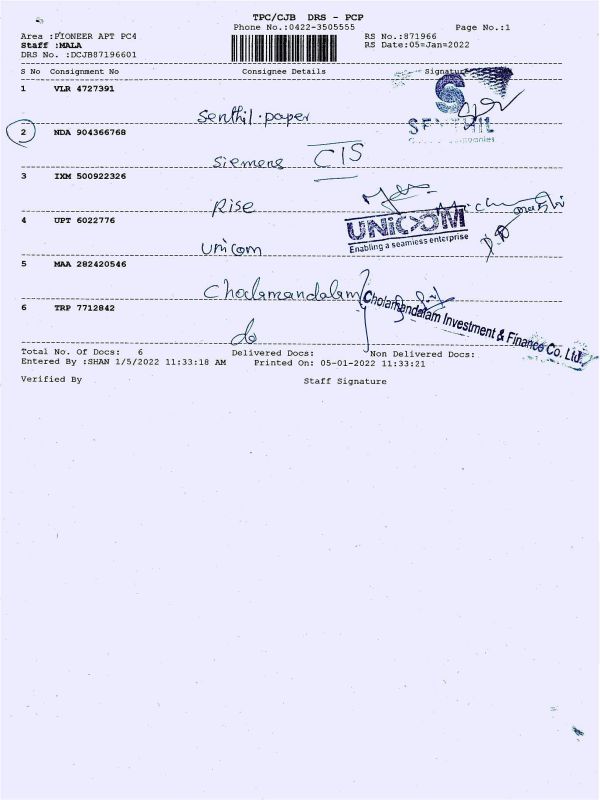 TPC/CJB DRS - PCP
Phone No.:0422-3505555
Page No.:1
Area :PIONEER APT PC4
RS No.:871966
Staff :MALA
RS Date:05=Jan=2022
DRS No. :DCJB87196601
S No Consignment No Consignee Details Signature
1 VLR 4727391
Senthil.paper
SENTHIL
2 NDA 904366768
Siemens CIS
3 IXM 500922326
Rise
4 UPT 6022776
UNICOM
Enabling a seamless enterprise
Unicom
5 MAA 282420546
Cholamandalam
Cholamandalam Investment & Finance Co. Ltd.
6 TRP 7712842
do
Total No. Of Docs: 6 Delivered Docs: Non Delivered Docs:
Entered By :SHAN 1/5/2022 11:33:18 AM Printed On: 05-01-2022 11:33:21
Verified By Staff Signature